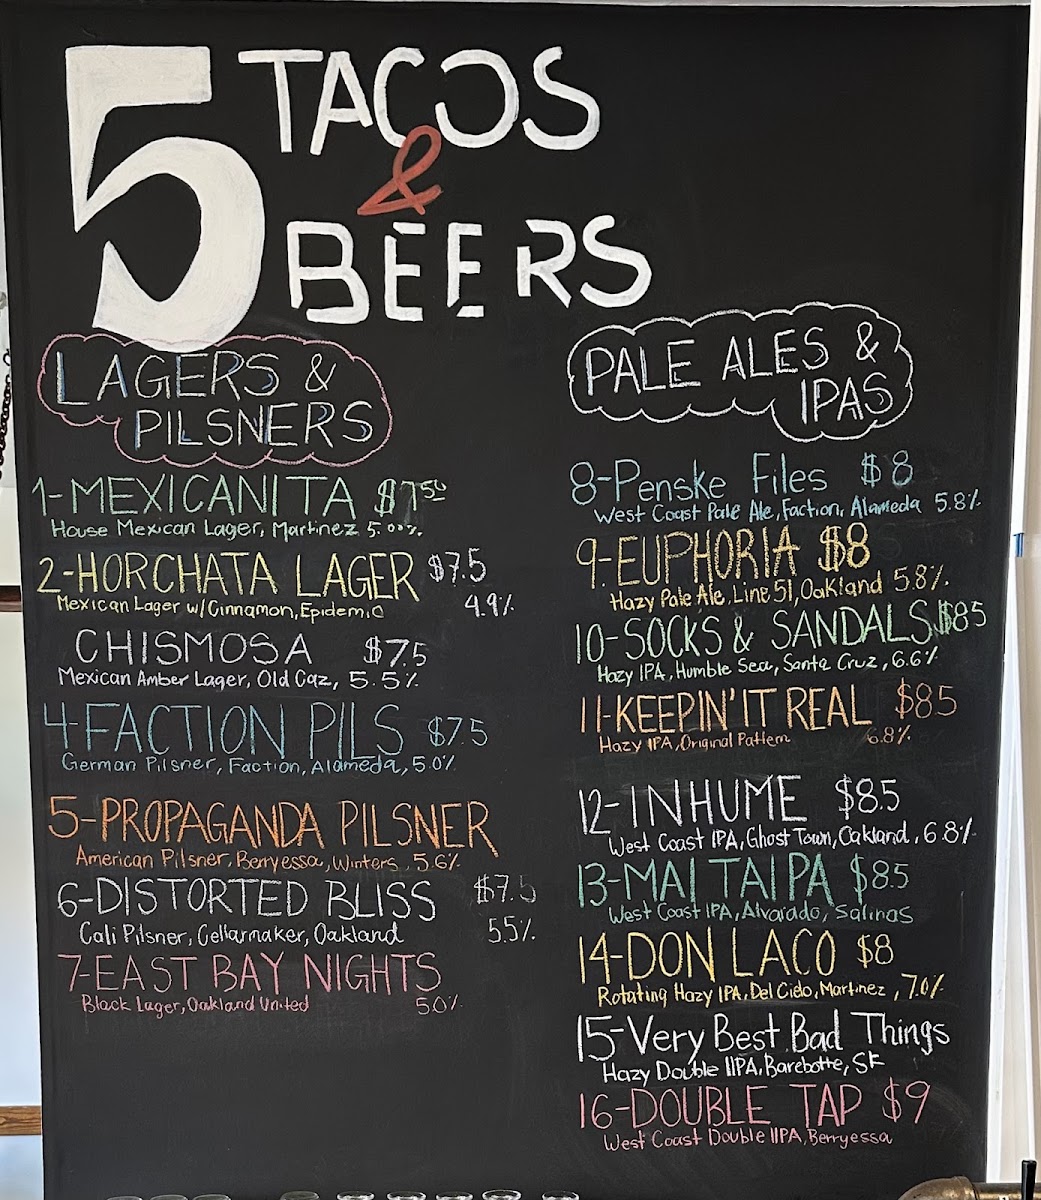 5 TACOS
&
BEERS
LAGERS &
PILSNERS
1-MEXICANITA $7⁵⁰
House Mexican Lager, Martinez 5.0%
2-HORCHATA LAGER $7.5
Mexican Lager w/Cinnamon, Epidemic 4.9%
CHISMOSA $7.5
Mexican Amber Lager, Old Caz, 5.5%
4-FACTION PILS $7.5
German Pilsner, Faction, Alameda, 5.0%
5-PROPAGANDA PILSNER
American Pilsner, Berryessa, Winters, 5.6%
6-DISTORTED BLISS $7.5
Cali Pilsner, Cellarmaker, Oakland 5.5%
7-EAST BAY NIGHTS
Black Lager, Oakland United 5.0%
PALE ALES &
IPAS
8-Penske Files $8
West Coast Pale Ale, Faction, Alameda 5.8%
9-EUPHORIA $8
Hazy Pale Ale, Line 51, Oakland 5.8%
10-SOCKS & SANDALS $8.5
Hazy IPA, Humble Sea, Santa Cruz, 6.6%
11-KEEPIN' IT REAL $8.5
Hazy IPA, Original Pattern 6.8%
12-INHUME $8.5
West Coast IPA, Ghost Town, Oakland, 6.8%
13-MAI TAI PA $8.5
West Coast IPA, Alvarado, Salinas
14-DON LACO $8
Rotating Hazy IPA, Del Cielo, Martinez, 7.0%
15-Very Best Bad Things
Hazy Double IIPA, Barebotte, SF
16-DOUBLE TAP $9
West Coast Double IIPA, Berryessa